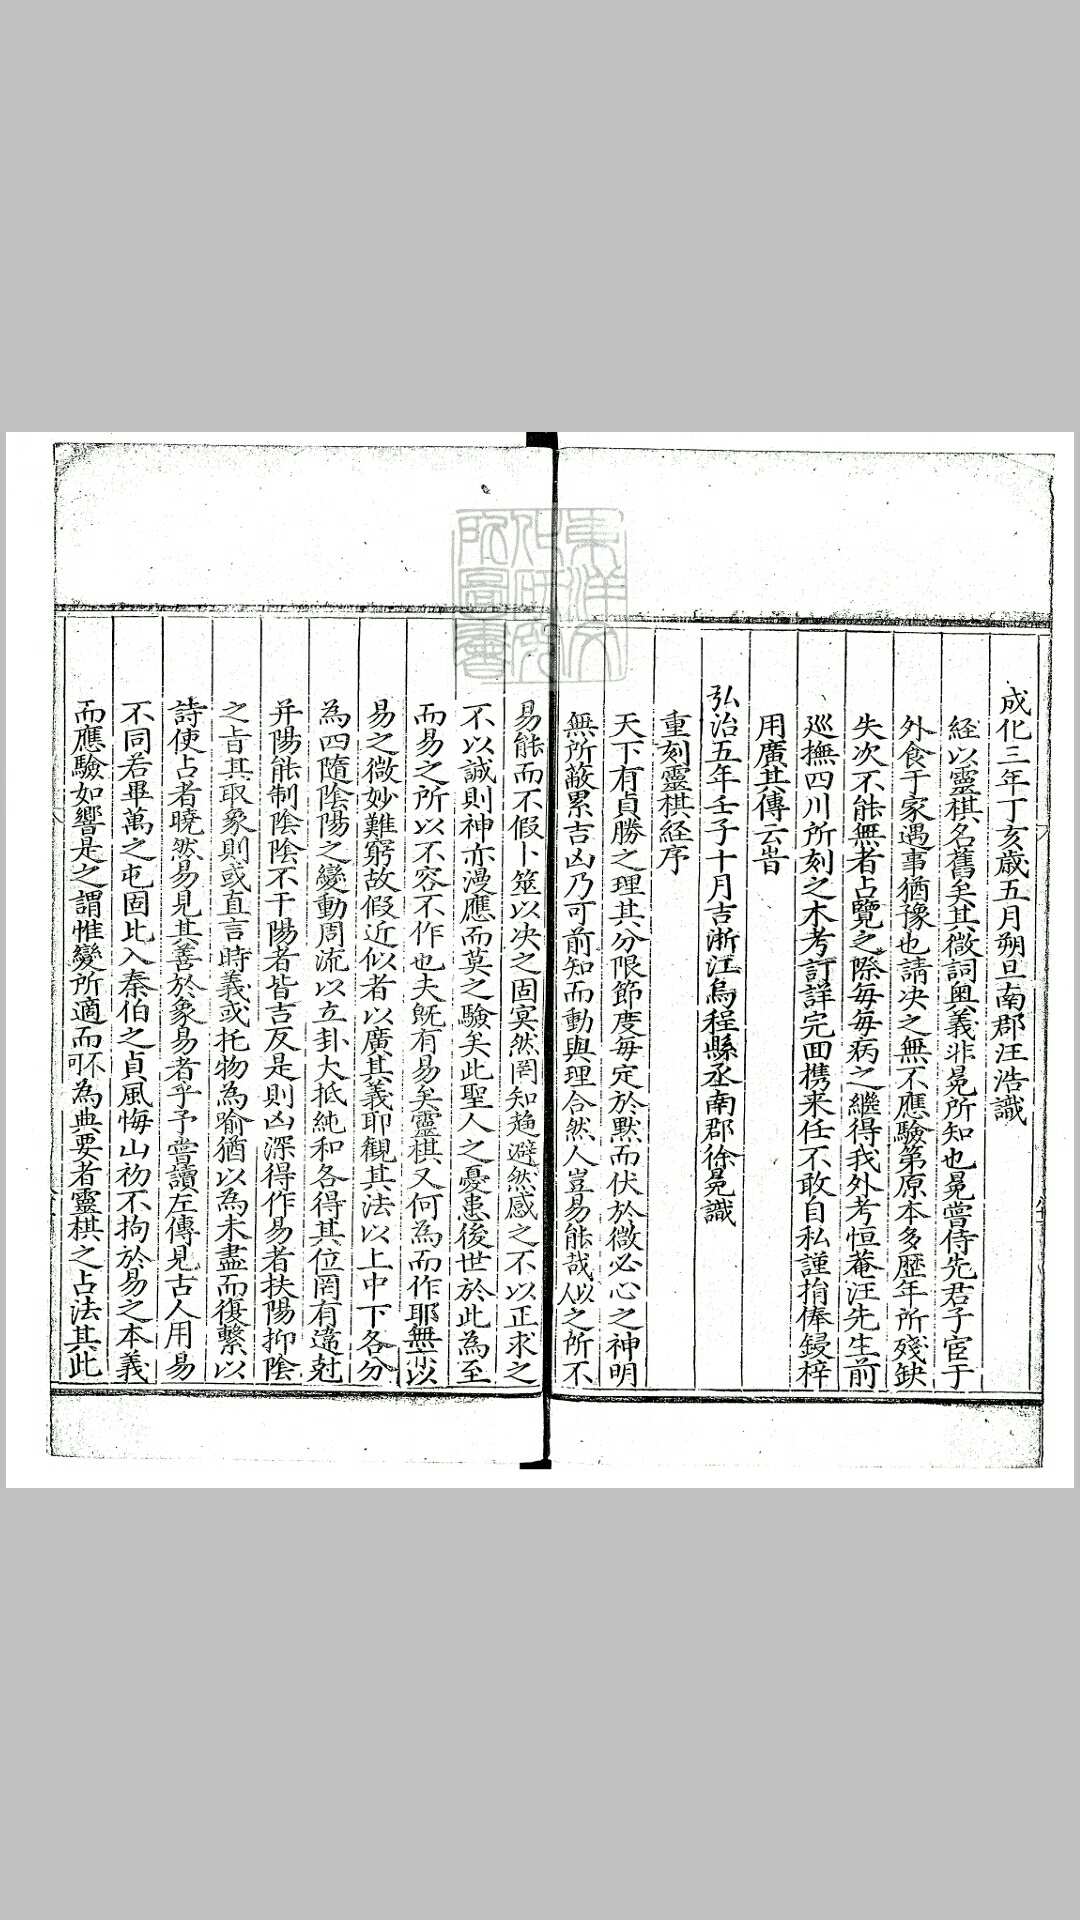 成化三年丁亥歲五月朔旦南郡汪浩識
経以靈棋名舊矣其微詞奥義非冕所知也冕嘗侍先君子宦于
外食于家遇事猶豫也請决之無不應驗第原本多歷年所殘缺
失次不能無者占覽之際每每病之繼得我外考恒菴汪先生前
廵撫四川所刻之木考訂詳完回携来任不敢自私謹捐俸鋟梓
用廣其傳云旹
弘治五年壬子十月吉浙江烏程縣丞南郡徐冕識
重刻靈棋経序
天下有貞勝之理其分限節度每定於黙而伏於微必心之神明
無所蔽累吉凶乃可前知而動與理合然人豈易能哉以人之所不
易能而不假卜筮以决之固冥然罔知趋避然感之不以正求之
不以誠則神亦漫應而莫之驗矣此聖人之憂患後世於此為至
而易之所以不容不作也夫旣有易矣靈棋又何為而作耶無亦以
易之微妙難窮故假近似者以廣其義耶観其法以上中下各分
為四隨陰陽之變動周流以立卦大抵純和各得其位罔有違尅
并陽能制陰陰不干陽者皆吉反是則凶深得作易者扶陽抑陰
之旨其取象則或直言時義或托物為喻猶以為未盡而復繫以
詩使占者曉然易見其善於象易者乎予嘗讀左傳見古人用易
不同若畢萬之屯固比入秦伯之貞風悔山初不拘於易之本義
而應驗如響是之謂惟變所適而不可為典要者靈棋之占法其此